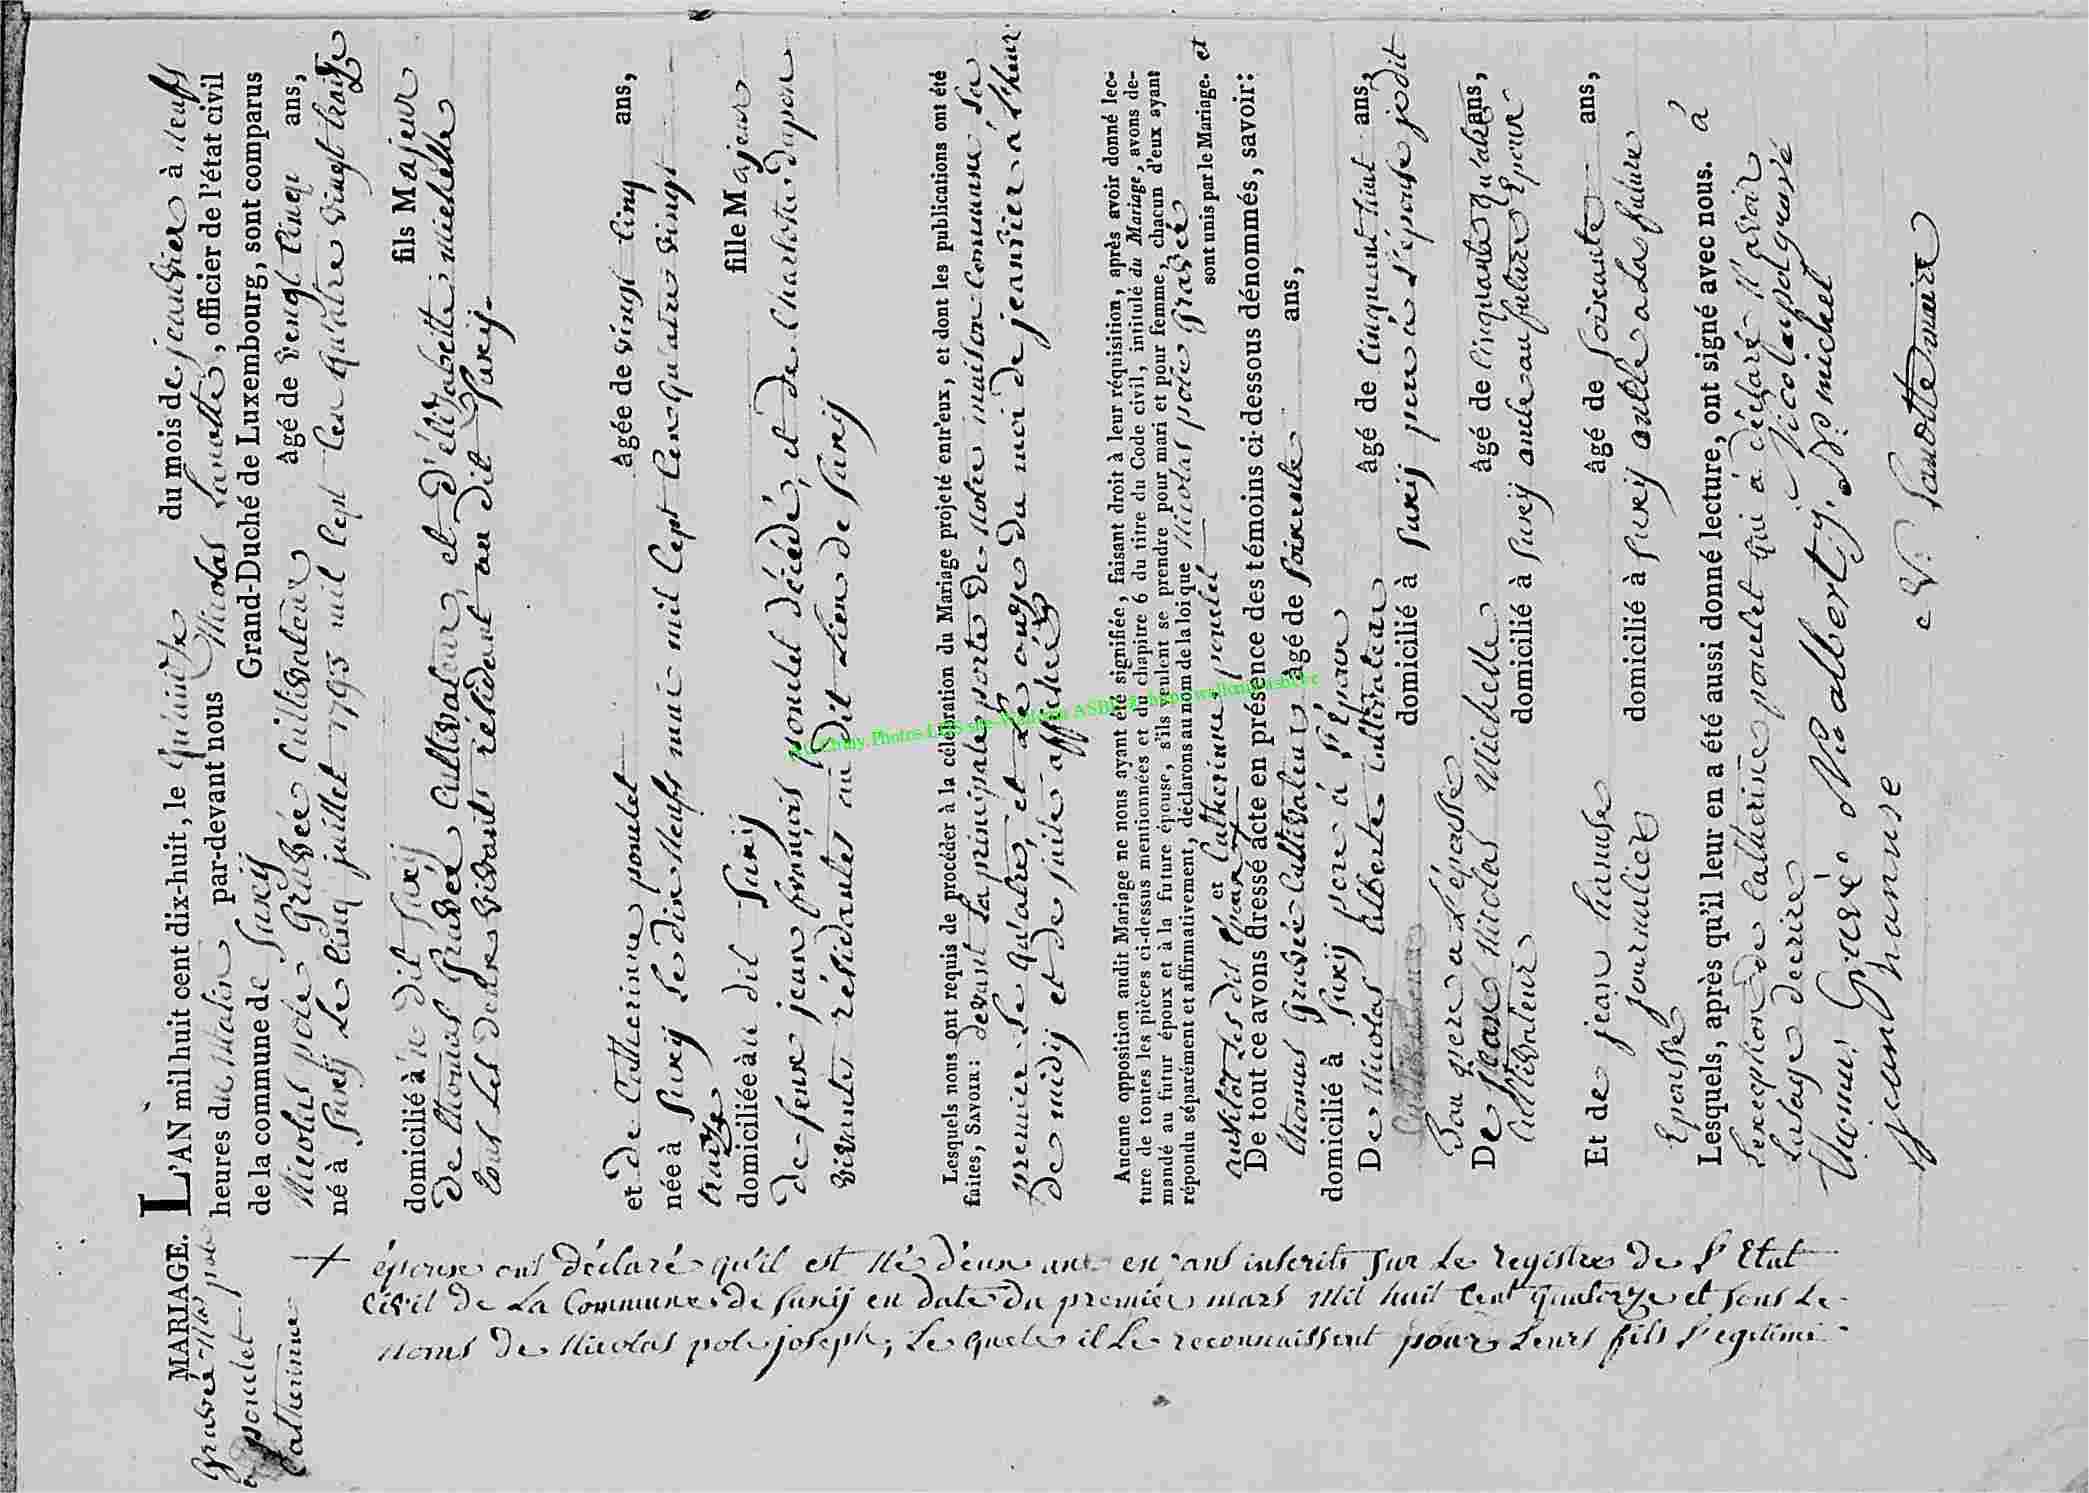 MARIAGE.
Gravée Nlas pole
& poncelet
Catherinne
L'AN mil huit cent dix-huit, le Quainze du mois de jeanvier à neufs
heures du Matin par-devant nous Nicolas Lanotte, officier de l'état civil
de la commune de Surij Grand-Duché de Luxembourg, sont comparus
Nicolas pole Gravée Cultivateur âgé de vengt cinqu ans,
né à Surij le cinq juillet 1793 mil sept cen quatre vingt traize
domicilié à u dit Surij fils Majeur
de thomas Gravée Cultivateur, et D'élizabette Michelle
tous les deux vivants résidant au dit Surij.
et de Catherinne poncelet âgée de vingt cinq ans,
née à Surij le dix neufs mai mil sept cen quatre vingt
traize
domiciliée à u dit Surij fille Majeur
de feux jean francois poncelet décédé, et de Charlotte dupon
vivante résidantes au dit lieu de Surij
Lesquels nous ont requis de procéder à la célébration du Mariage projeté entr'eux, et dont les publications ont été
faites, SAVOIR: devant La principale porte de Notre maison Commune Le
premier Le quatre, et Le onze du moi de jeanvier à l'heur
de midij et de suite affichéz
Aucune opposition audit Mariage ne nous ayant été signifiée, faisant droit à leur réquisition, après avoir donné lec-
ture de toutes les pièces ci-dessus mentionnées et du chapitre 6 du titre du Code civil, intitulé du Mariage, avons de-
mandé au futur époux et à la future épouse, s'ils veulent se prendre pour mari et pour femme, chacun d'eux ayant
répondu séparément et affirmativement, déclarons au nom de la loi que Nicolas pole Gravée
et Catherinne poncelet sont unis par le Mariage. et
ausitot Les dit Epoux
De tout ce avons dressé acte en présence des témoins ci-dessous dénommés, savoir:
thomas Gravée Cultivateur âgé de Soixente ans,
domicilié à Surij pere à l'Epoux
De Nicolas Alberte Cultivateur âgé de Cinquant huit ans,
domicilié à Surij pere à L'épouse jodit
Bou piere a L'épousse
De jean Nicolas Michelle âgé de Cinquante qu'atre ans,
Cultivateur domicilié à Surij oncle au future Epoux
Et de jean hanuse âgé de Soixente ans,
journalier domicilié à Surij oncle a La future
Epousse
Lesquels, après qu'il leur en a été aussi donné lecture, ont signé avec nous. à
L'exception de Catharine poncelet qui à déclaré N'avoir
L'usage decrire Nicolaspolgravé
thomas Gravé Nicolas alberty Jn michel
jean hanuse N. Lanotte maire
+ épouse ont déclaré qu'il est Né d'eux un enfant inscrits sur Le Registre de L'Etat
Civil de La Commune de Surij en date du premier mars Mil huit Cent quatorze et sous Le
Noms de Nicolas pole joseph, Le quele il Le reconnaissent pour Leurs fils L'égitime